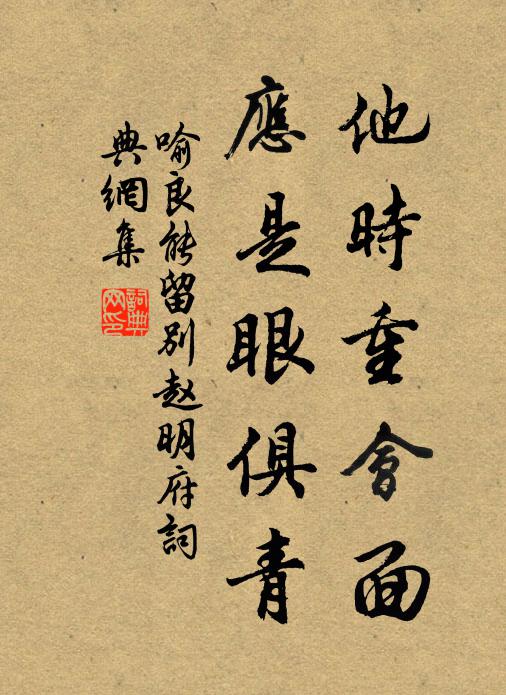 他時重會面
應是眼俱青
喻良能留别赵明府詞
典網集
詞典
网印